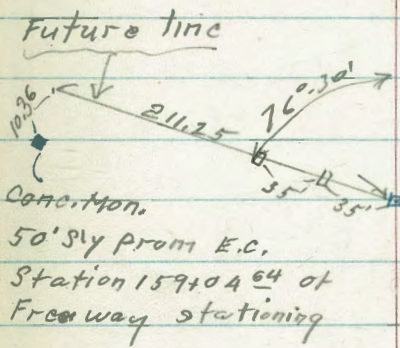 Future line
10.36
211.25
16°30'
35'
35'
Conc. Mon.
50' S'ly from E.C.
Station 159+04 64 of
Freeway stationing